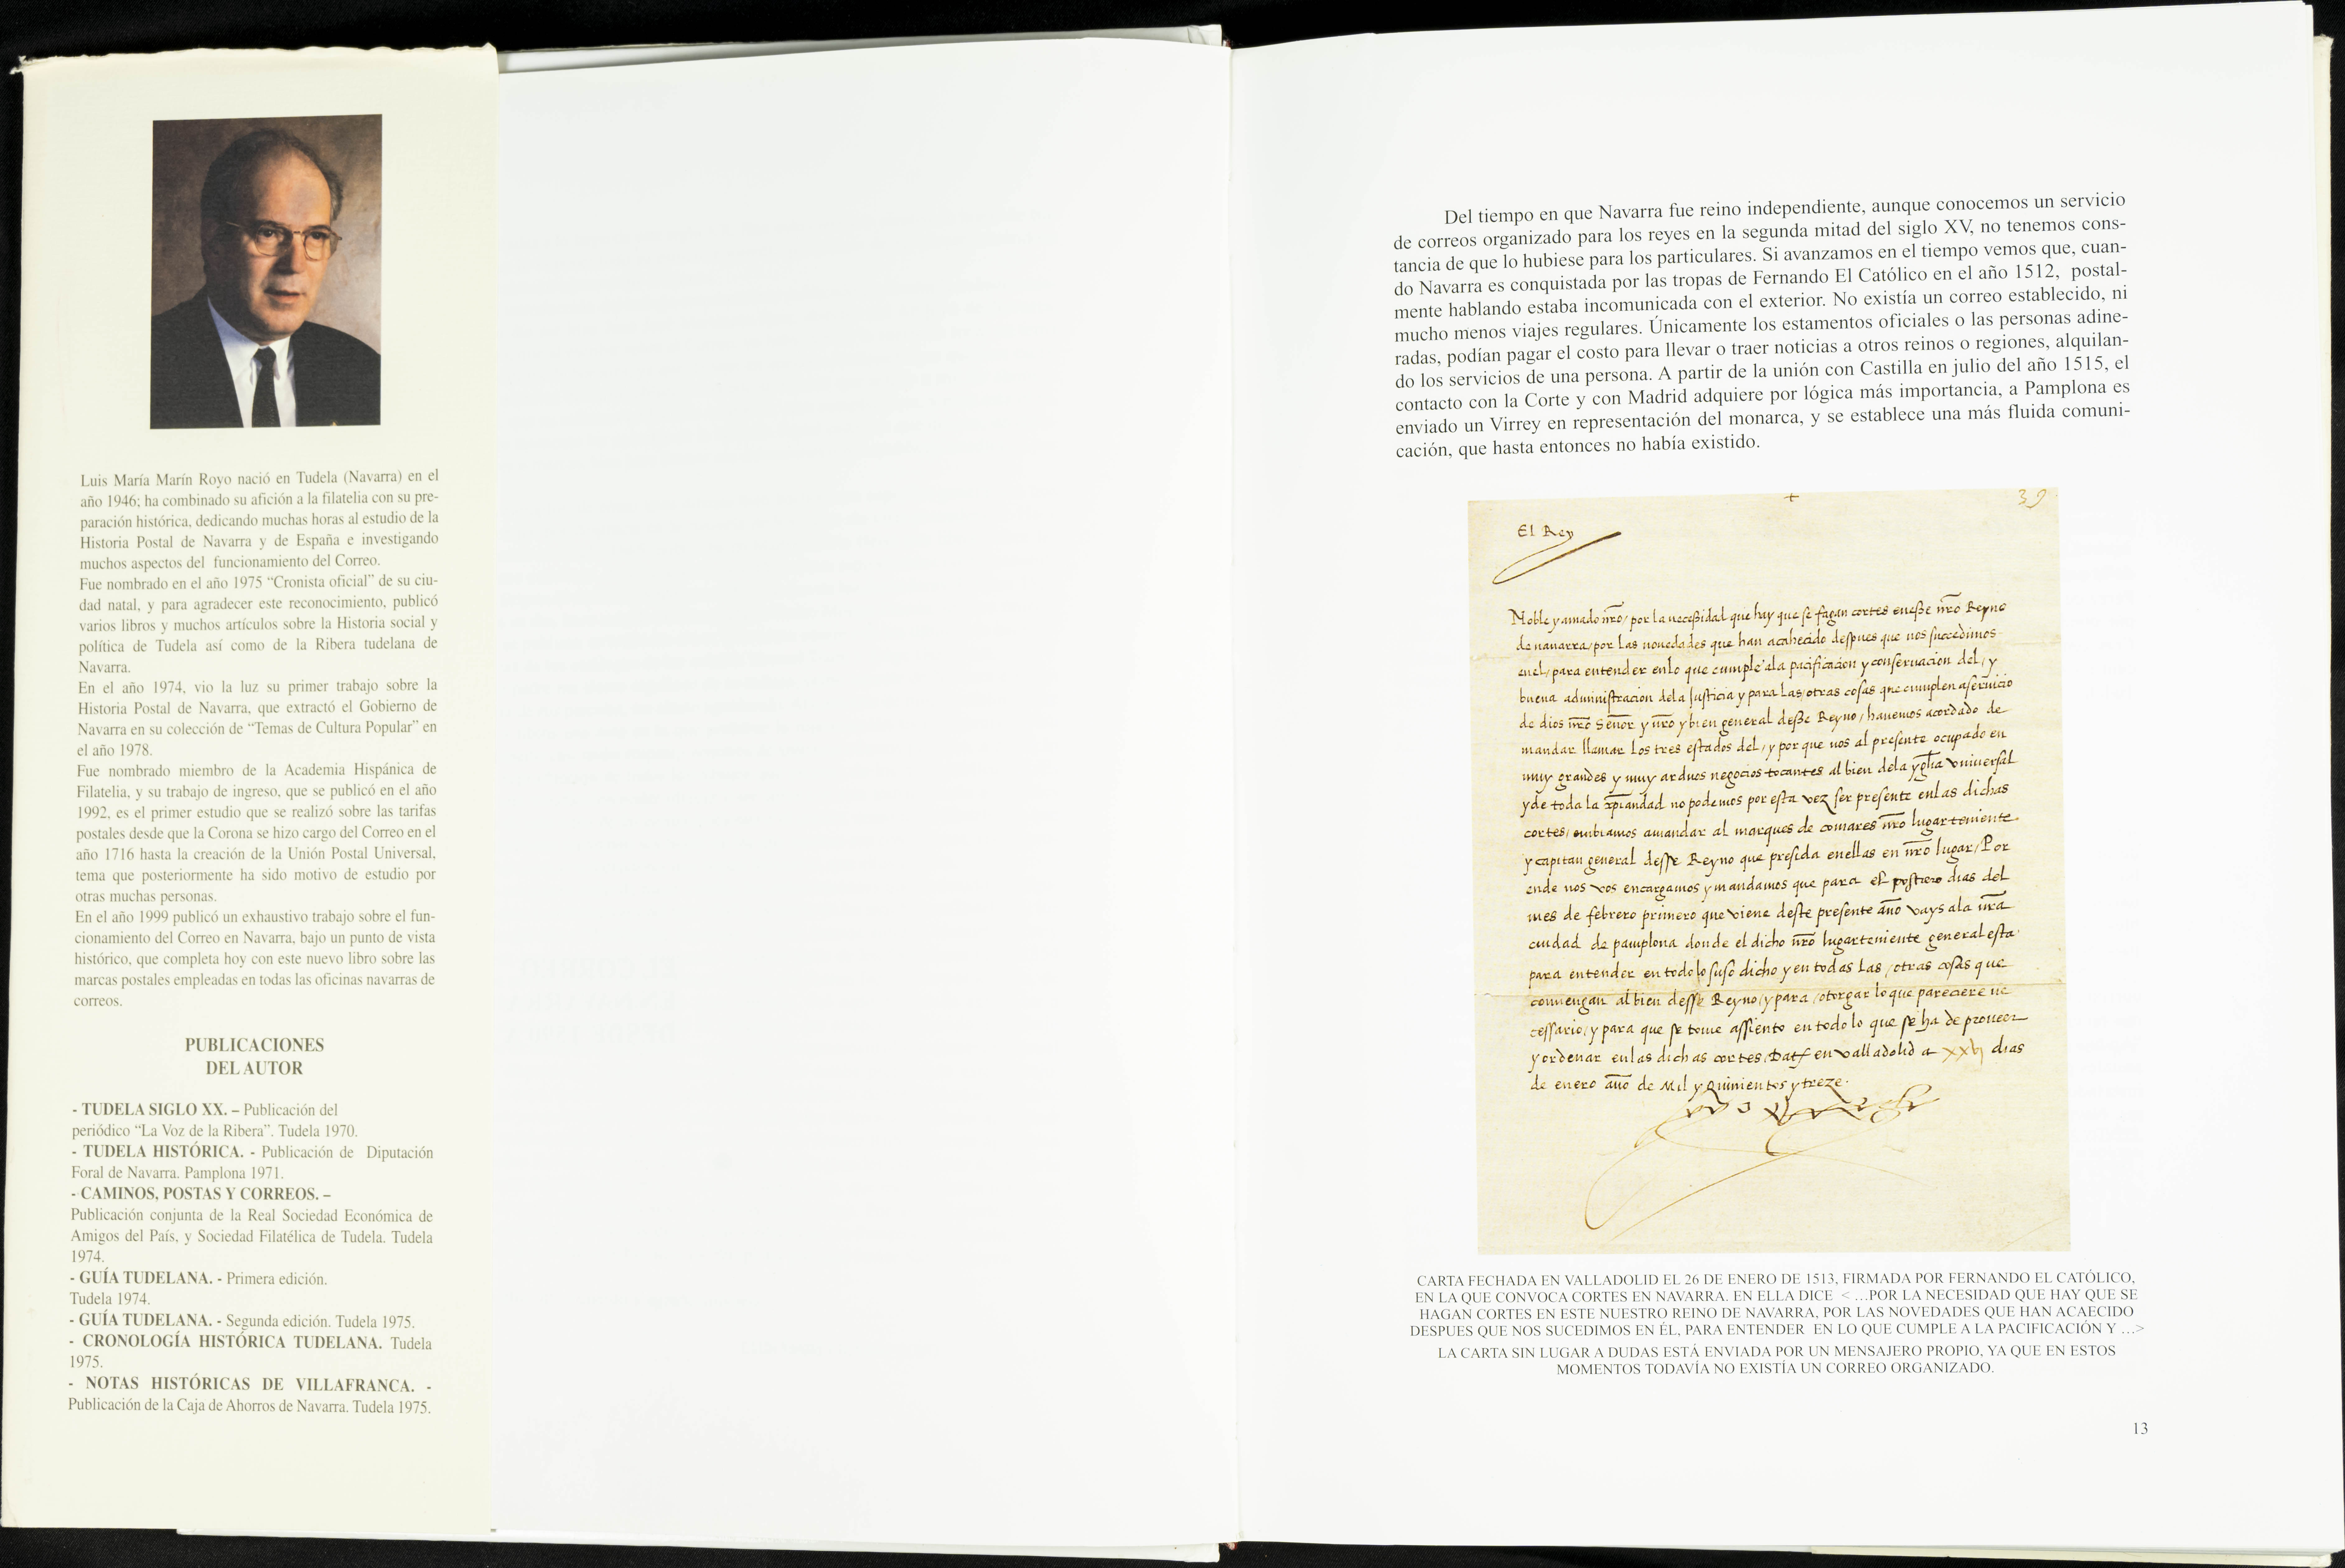 Luis María Marín Royo nació en Tudela (Navarra) en el
año 1946; ha combinado su afición a la filatelia con su pre-
paración histórica, dedicando muchas horas al estudio de la
Historia Postal de Navarra y de España e investigando
muchos aspectos del funcionamiento del Correo.
Fue nombrado en el año 1975 “Cronista oficial” de su ciu-
dad natal, y para agradecer este reconocimiento, publicó
varios libros y muchos artículos sobre la Historia social y
política de Tudela así como de la Ribera tudelana de
Navarra.
En el año 1974, vio la luz su primer trabajo sobre la
Historia Postal de Navarra, que extractó el Gobierno de
Navarra en su colección de “Temas de Cultura Popular” en
el año 1978.
Fue nombrado miembro de la Academia Hispánica de
Filatelia, y su trabajo de ingreso, que se publicó en el año
1992, es el primer estudio que se realizó sobre las tarifas
postales desde que la Corona se hizo cargo del Correo en el
año 1716 hasta la creación de la Unión Postal Universal,
tema que posteriormente ha sido motivo de estudio por
otras muchas personas.
En el año 1999 publicó un exhaustivo trabajo sobre el fun-
cionamiento del Correo en Navarra, bajo un punto de vista
histórico, que completa hoy con este nuevo libro sobre las
marcas postales empleadas en todas las oficinas navarras de
correos.
PUBLICACIONES
DEL AUTOR
- TUDELA SIGLO XX. – Publicación del
periódico “La Voz de la Ribera”. Tudela 1970.
- TUDELA HISTÓRICA. - Publicación de Diputación
Foral de Navarra. Pamplona 1971.
- CAMINOS, POSTAS Y CORREOS. –
Publicación conjunta de la Real Sociedad Económica de
Amigos del País, y Sociedad Filatélica de Tudela. Tudela
1974.
- GUÍA TUDELANA. - Primera edición.
Tudela 1974.
- GUÍA TUDELANA. - Segunda edición. Tudela 1975.
- CRONOLOGÍA HISTÓRICA TUDELANA. Tudela
1975.
- NOTAS HISTÓRICAS DE VILLAFRANCA. -
Publicación de la Caja de Ahorros de Navarra. Tudela 1975.
Del tiempo en que Navarra fue reino independiente, aunque conocemos un servicio
de correos organizado para los reyes en la segunda mitad del siglo XV, no tenemos cons-
tancia de que lo hubiese para los particulares. Si avanzamos en el tiempo vemos que, cuan-
do Navarra es conquistada por las tropas de Fernando El Católico en el año 1512, postal-
mente hablando estaba incomunicada con el exterior. No existía un correo establecido, ni
mucho menos viajes regulares. Únicamente los estamentos oficiales o las personas adine-
radas, podían pagar el costo para llevar o traer noticias a otros reinos o regiones, alquilan-
do los servicios de una persona. A partir de la unión con Castilla en julio del año 1515, el
contacto con la Corte y con Madrid adquiere por lógica más importancia, a Pamplona es
enviado un Virrey en representación del monarca, y se establece una más fluida comuni-
cación, que hasta entonces no había existido.
39
El Rey
Noble y amado nro / por la necessidad que hay que se fagan cortes en esse nro Reyno
de nauarra / por las nouedades que han acahecido despues que nos succedimos
en el / para entender en lo que cumple ala pacificacion y conseruacion del / y
buena administracion dela Justicia y para las / otras cosas que cumplen a seruicio
de dios nro Señor y nro y bien general desse Reyno / hauemos acordado de
mandar llamar los tres estados del / y por que nos al presente ocupado en
muy grandes y muy arduos negocios tocantes al bien dela yglia vniuersal
y de toda la xpiandad no podemos por esta vez ser presente en las dichas
cortes / embiamos amandar al marques de comares nro lugarteniente
y capitan general desse Reyno que presida en ellas en nro lugar / Por
ende nos vos encargamos y mandamos que para el postrero dias del
mes de febrero primero que viene deste presente año vays ala nra
ciudad de pamplona donde el dicho nro lugarteniente general esta
para entender en todo lo suso dicho y en todas las / otras cosas que
conuengan al bien desse Reyno / y para / otorgar lo que pareciere ne
cessario / y para que se tome assiento en todo lo que se ha de proueer
y ordenar en las dichas cortes / Dat en valladolid a xxvj dias
de enero año de Mil y Quinientos y treze.
CARTA FECHADA EN VALLADOLID EL 26 DE ENERO DE 1513, FIRMADA POR FERNANDO EL CATÓLICO,
EN LA QUE CONVOCA CORTES EN NAVARRA. EN ELLA DICE < …POR LA NECESIDAD QUE HAY QUE SE
HAGAN CORTES EN ESTE NUESTRO REINO DE NAVARRA, POR LAS NOVEDADES QUE HAN ACAECIDO
DESPUES QUE NOS SUCEDIMOS EN ÉL, PARA ENTENDER EN LO QUE CUMPLE A LA PACIFICACIÓN Y …>
LA CARTA SIN LUGAR A DUDAS ESTÁ ENVIADA POR UN MENSAJERO PROPIO, YA QUE EN ESTOS
MOMENTOS TODAVÍA NO EXISTÍA UN CORREO ORGANIZADO.
13